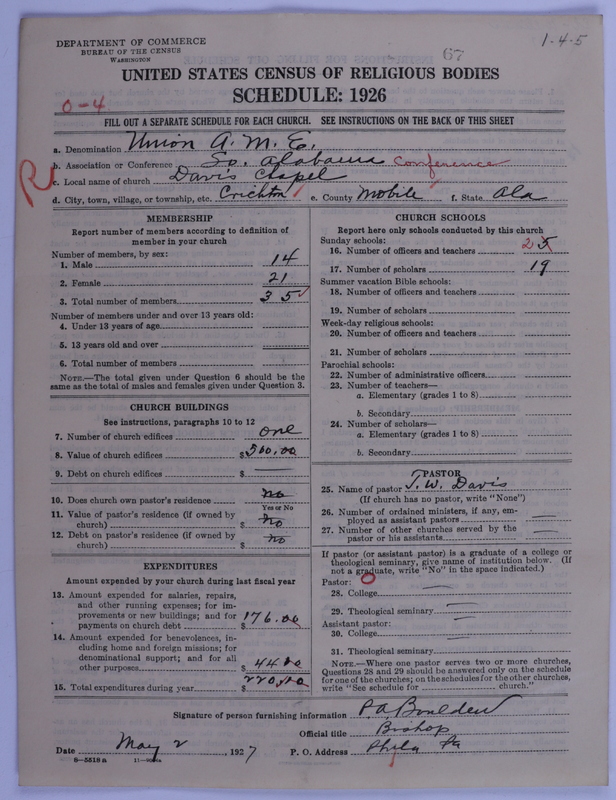 1-4-5
67
DEPARTMENT OF COMMERCE
BUREAU OF THE CENSUS
WASHINGTON
UNITED STATES CENSUS OF RELIGIOUS BODIES
SCHEDULE: 1926
0-4
FILL OUT A SEPARATE SCHEDULE FOR EACH CHURCH. SEE INSTRUCTIONS ON THE BACK OF THIS SHEET
R
a. Denomination Union A. M. E.
b. Association or Conference So. Alabama Conference
c. Local name of church Davis Chapel
d. City, town, village, or township, etc. Crichton e. County Mobile f. State Ala
MEMBERSHIP
Report number of members according to definition of
member in your church
Number of members, by sex:
1. Male 14
2. Female 21
3. Total number of members 35
Number of members under and over 13 years old:
4. Under 13 years of age
5. 13 years old and over
6. Total number of members
NOTE.—The total given under Question 6 should be the
same as the total of males and females given under Question 3.
CHURCH BUILDINGS
See instructions, paragraphs 10 to 12
7. Number of church edifices one
8. Value of church edifices $500.00
9. Debt on church edifices $ —
10. Does church own pastor's residence no
Yes or No
11. Value of pastor's residence (if owned by
church) $ no
12. Debt on pastor's residence (if owned by
church) $ no
EXPENDITURES
Amount expended by your church during last fiscal year
13. Amount expended for salaries, repairs,
and other running expenses; for im-
provements or new buildings; and for
payments on church debt $ 176.00
14. Amount expended for benevolences, in-
cluding home and foreign missions; for
denominational support; and for all
other purposes 44.00
15. Total expenditures during year $ 220.00
CHURCH SCHOOLS
Report here only schools conducted by this church
Sunday schools:
16. Number of officers and teachers 2 5
17. Number of scholars 19
Summer vacation Bible schools:
18. Number of officers and teachers
19. Number of scholars
Week-day religious schools:
20. Number of officers and teachers
21. Number of scholars
Parochial schools:
22. Number of administrative officers
23. Number of teachers—
a. Elementary (grades 1 to 8)
b. Secondary
24. Number of scholars—
a. Elementary (grades 1 to 8)
b. Secondary
PASTOR
25. Name of pastor J. W. Davis
(If church has no pastor, write "None")
26. Number of ordained ministers, if any, em-
ployed as assistant pastors —
27. Number of other churches served by the
pastor or his assistants —
If pastor (or assistant pastor) is a graduate of a college or
theological seminary, give name of institution below. (If
not a graduate, write "No" in the space indicated.)
Pastor: 0
28. College —
29. Theological seminary —
Assistant pastor:
30. College —
31. Theological seminary —
NOTE.—Where one pastor serves two or more churches,
Questions 28 and 29 should be answered only on the schedule
for one of the churches; on the schedules for the other churches,
write "See schedule for church."
Signature of person furnishing information P. A. Boulden
Official title Bishop
Date May 2, 1927 P. O. Address Phila Pa
8-5518a